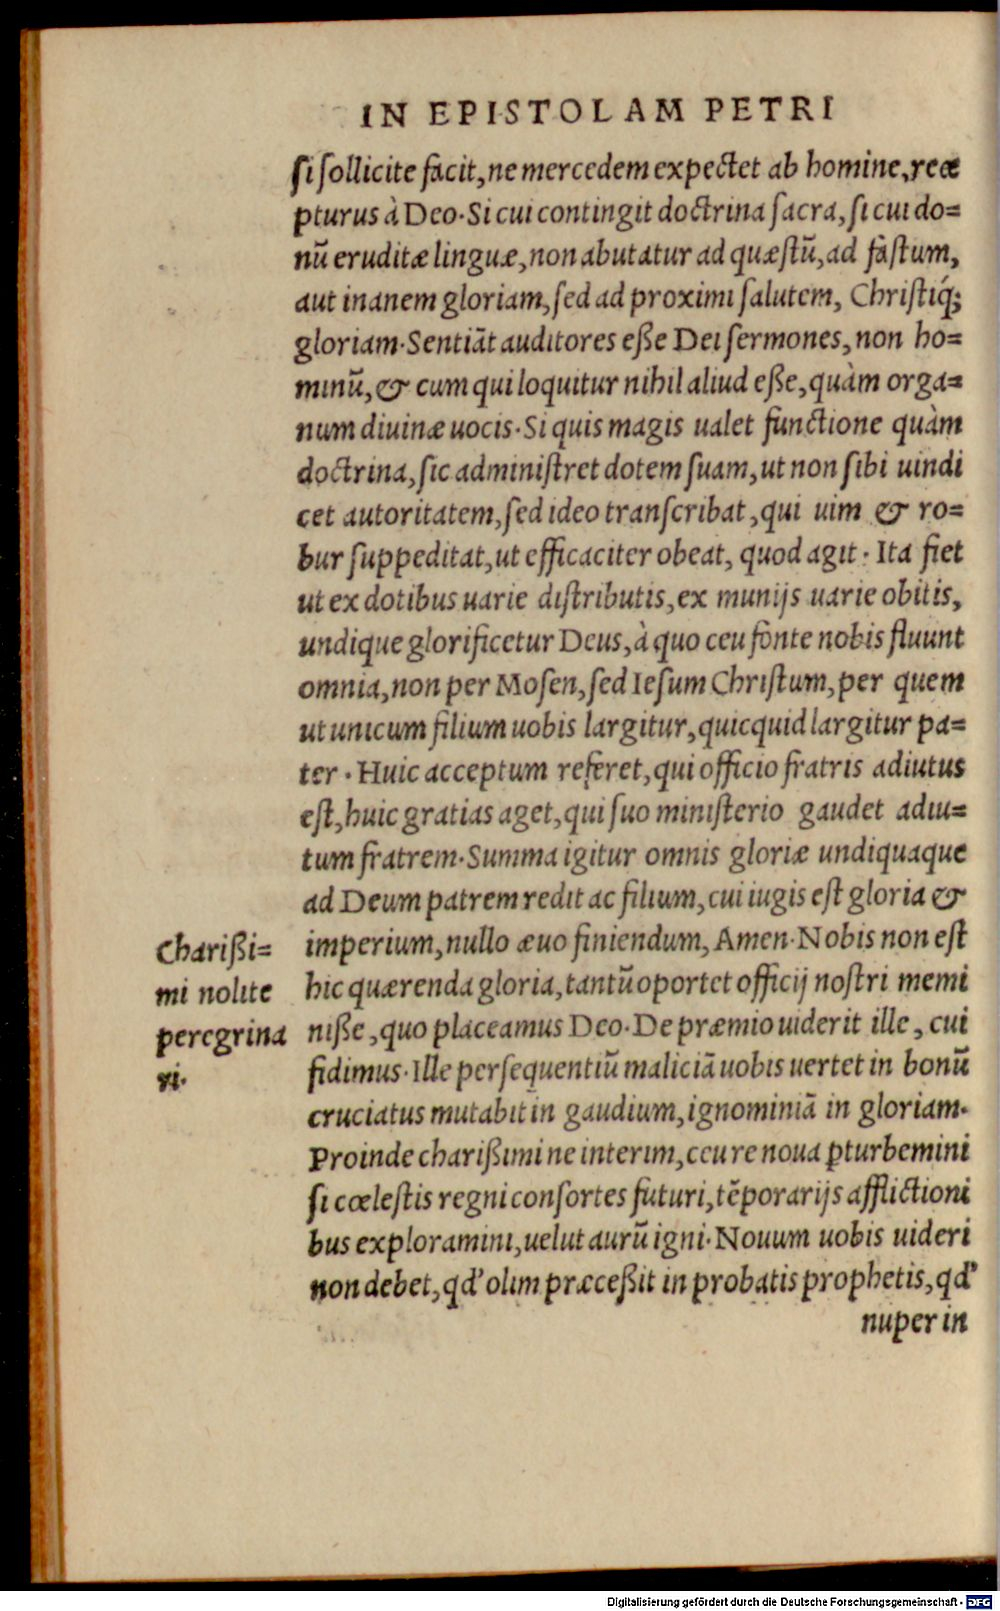 IN EPISTOLAM PETRI
si sollicite facit, ne mercedem expectet ab homine, reæ
pturus à Deo. Si cui contingit doctrina sacra, si cui do=
nū eruditæ linguæ, non abutatur ad quæstū, ad fastum,
aut inanem gloriam, sed ad proximi salutem, Christiq́;
gloriam. Sentiāt auditores eße Dei sermones, non ho=
minū, & cum qui loquitur nihil aliud eße, quàm orga=
num diuinæ uocis. Si quis magis ualet functione quàm
doctrina, sic administret dotem suam, ut non sibi uindi
cet autoritatem, sed ideo transcribat, qui uim & ro=
bur suppeditat, ut efficaciter obeat, quod agit. Ita fiet
ut ex dotibus uarie distributis, ex munijs uarie obitis,
undique glorificetur Deus, à quo ceu fonte nobis fluunt
omnia, non per Mosen, sed Iesum Christum, per quem
ut unicum filium uobis largitur, quicquid largitur pa=
ter. Huic acceptum referet, qui officio fratris adiutus
est, huic gratias aget, qui suo ministerio gaudet adiu=
tum fratrem. Summa igitur omnis gloriæ undiquaque
ad Deum patrem redit ac filium, cui iugis est gloria &
imperium, nullo æuo finiendum, Amen. Nobis non est
hic quærenda gloria, tantū oportet officij nostri memi
niße, quo placeamus Deo. De præmio uiderit ille, cui
fidimus. Ille persequentiū maliciā uobis uertet in bonū
cruciatus mutabit in gaudium, ignominiā in gloriam.
Proinde charißimi ne interim, ceu re noua ꝑturbemini
si cœlestis regni consortes futuri, tēporarijs afflictioni
bus exploramini, uelut aurū igni. Nouum uobis uideri
non debet, qd' olim præceßit in probatis prophetis, qd'
nuper in
Charißi=
mi nolite
peregrina
ri.
Digitalisierung gefördert durch die Deutsche Forschungsgemeinschaft - DFG